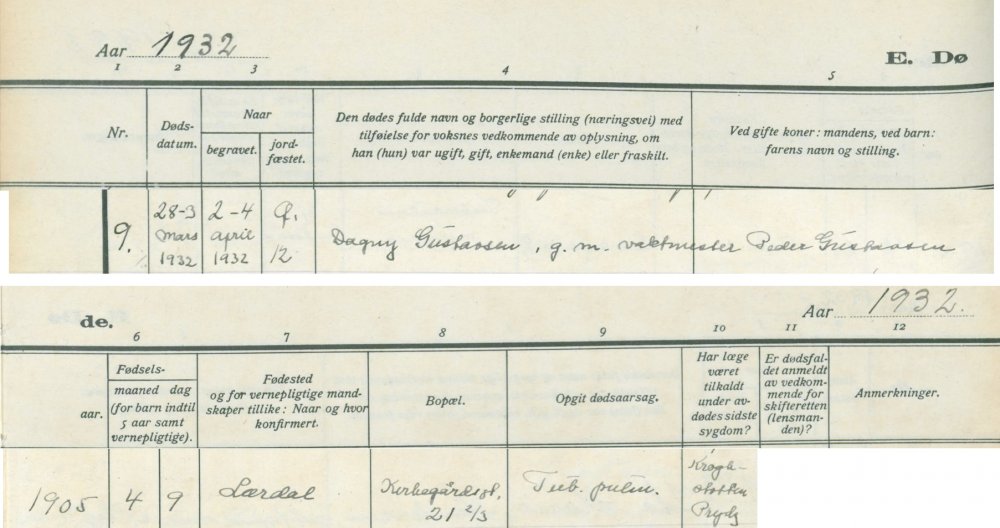 Aar 1932
E. Dø
1 2 3 4 5
Nr.
Døds-
datum.
Naar
begravet.
jord-
fæstet.
Den dødes fulde navn og borgerlige stilling (næringsvei) med
tilføielse for voksnes vedkommende av oplysning, om
han (hun) var ugift, gift, enkemand (enke) eller fraskilt.
Ved gifte koner: mandens, ved barn:
farens navn og stilling.
9.
28-3
mars
1932
2-4
april
1932
12
Dagny Gustavsen, g. m. vaktmester Peder Gustavsen
de.
Aar 1932.
6 7 8 9 10 11 12
aar.
Fødsels-
maaned dag
(for barn indtil
5 aar samt
vernepligtige).
Fødested
og for vernepligtige mand-
skaper tillike: Naar og hvor
konfirmert.
Bopæl.
Opgit dødsaarsag.
Har læge
været
tilkaldt
under av-
dødes sidste
sygdom?
Er dødsfal-
det anmeldt
av vedkom-
mende for
skifteretten
(lensman-
den)?
Anmerkninger.
1905 4 9 Lærdal
Kirkegårdsgt.
21 2/3
Tub. pulm.
Krogh-